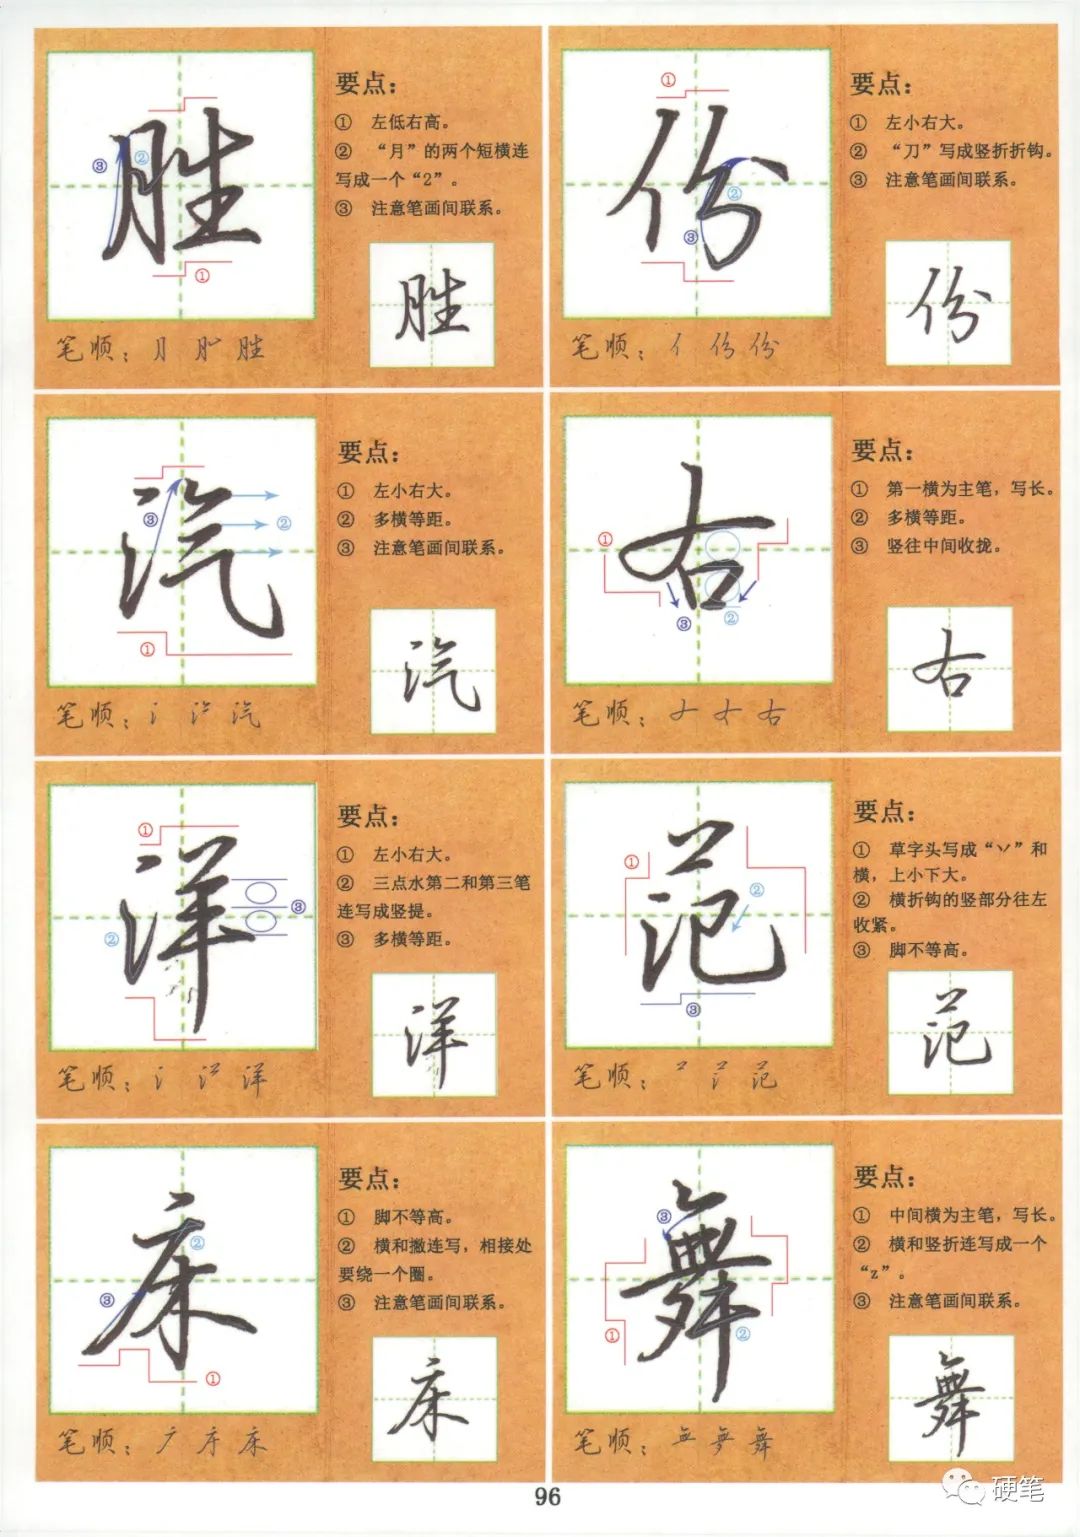 胜
要点：
① 左低右高。
② “月”的两个短横连
写成一个“2”。
③ 注意笔画间联系。
胜
笔顺：
胜
份
要点：
① 左小右大。
② “刀”写成竖折折钩。
③ 注意笔画间联系。
份
笔顺：亻 份 份
汽
要点：
① 左小右大。
② 多横等距。
③ 注意笔画间联系。
汽
笔顺：
汽
右
要点：
① 第一横为主笔，写长。
② 多横等距。
③ 竖往中间收拢。
右
笔顺：
右
洋
要点：
① 左小右大。
② 三点水第二和第三笔
连写成竖提。
③ 多横等距。
洋
笔顺：
洋
范
要点：
① 草字头写成“丷”和
横，上小下大。
② 横折钩的竖部分往左
收紧。
③ 脚不等高。
范
笔顺：
范
床
要点：
① 脚不等高。
② 横和撇连写，相接处
要绕一个圈。
③ 注意笔画间联系。
床
笔顺：
床
舞
要点：
① 中间横为主笔，写长。
② 横和竖折连写成一个
“z”。
③ 注意笔画间联系。
舞
笔顺：
舞
96
硬笔